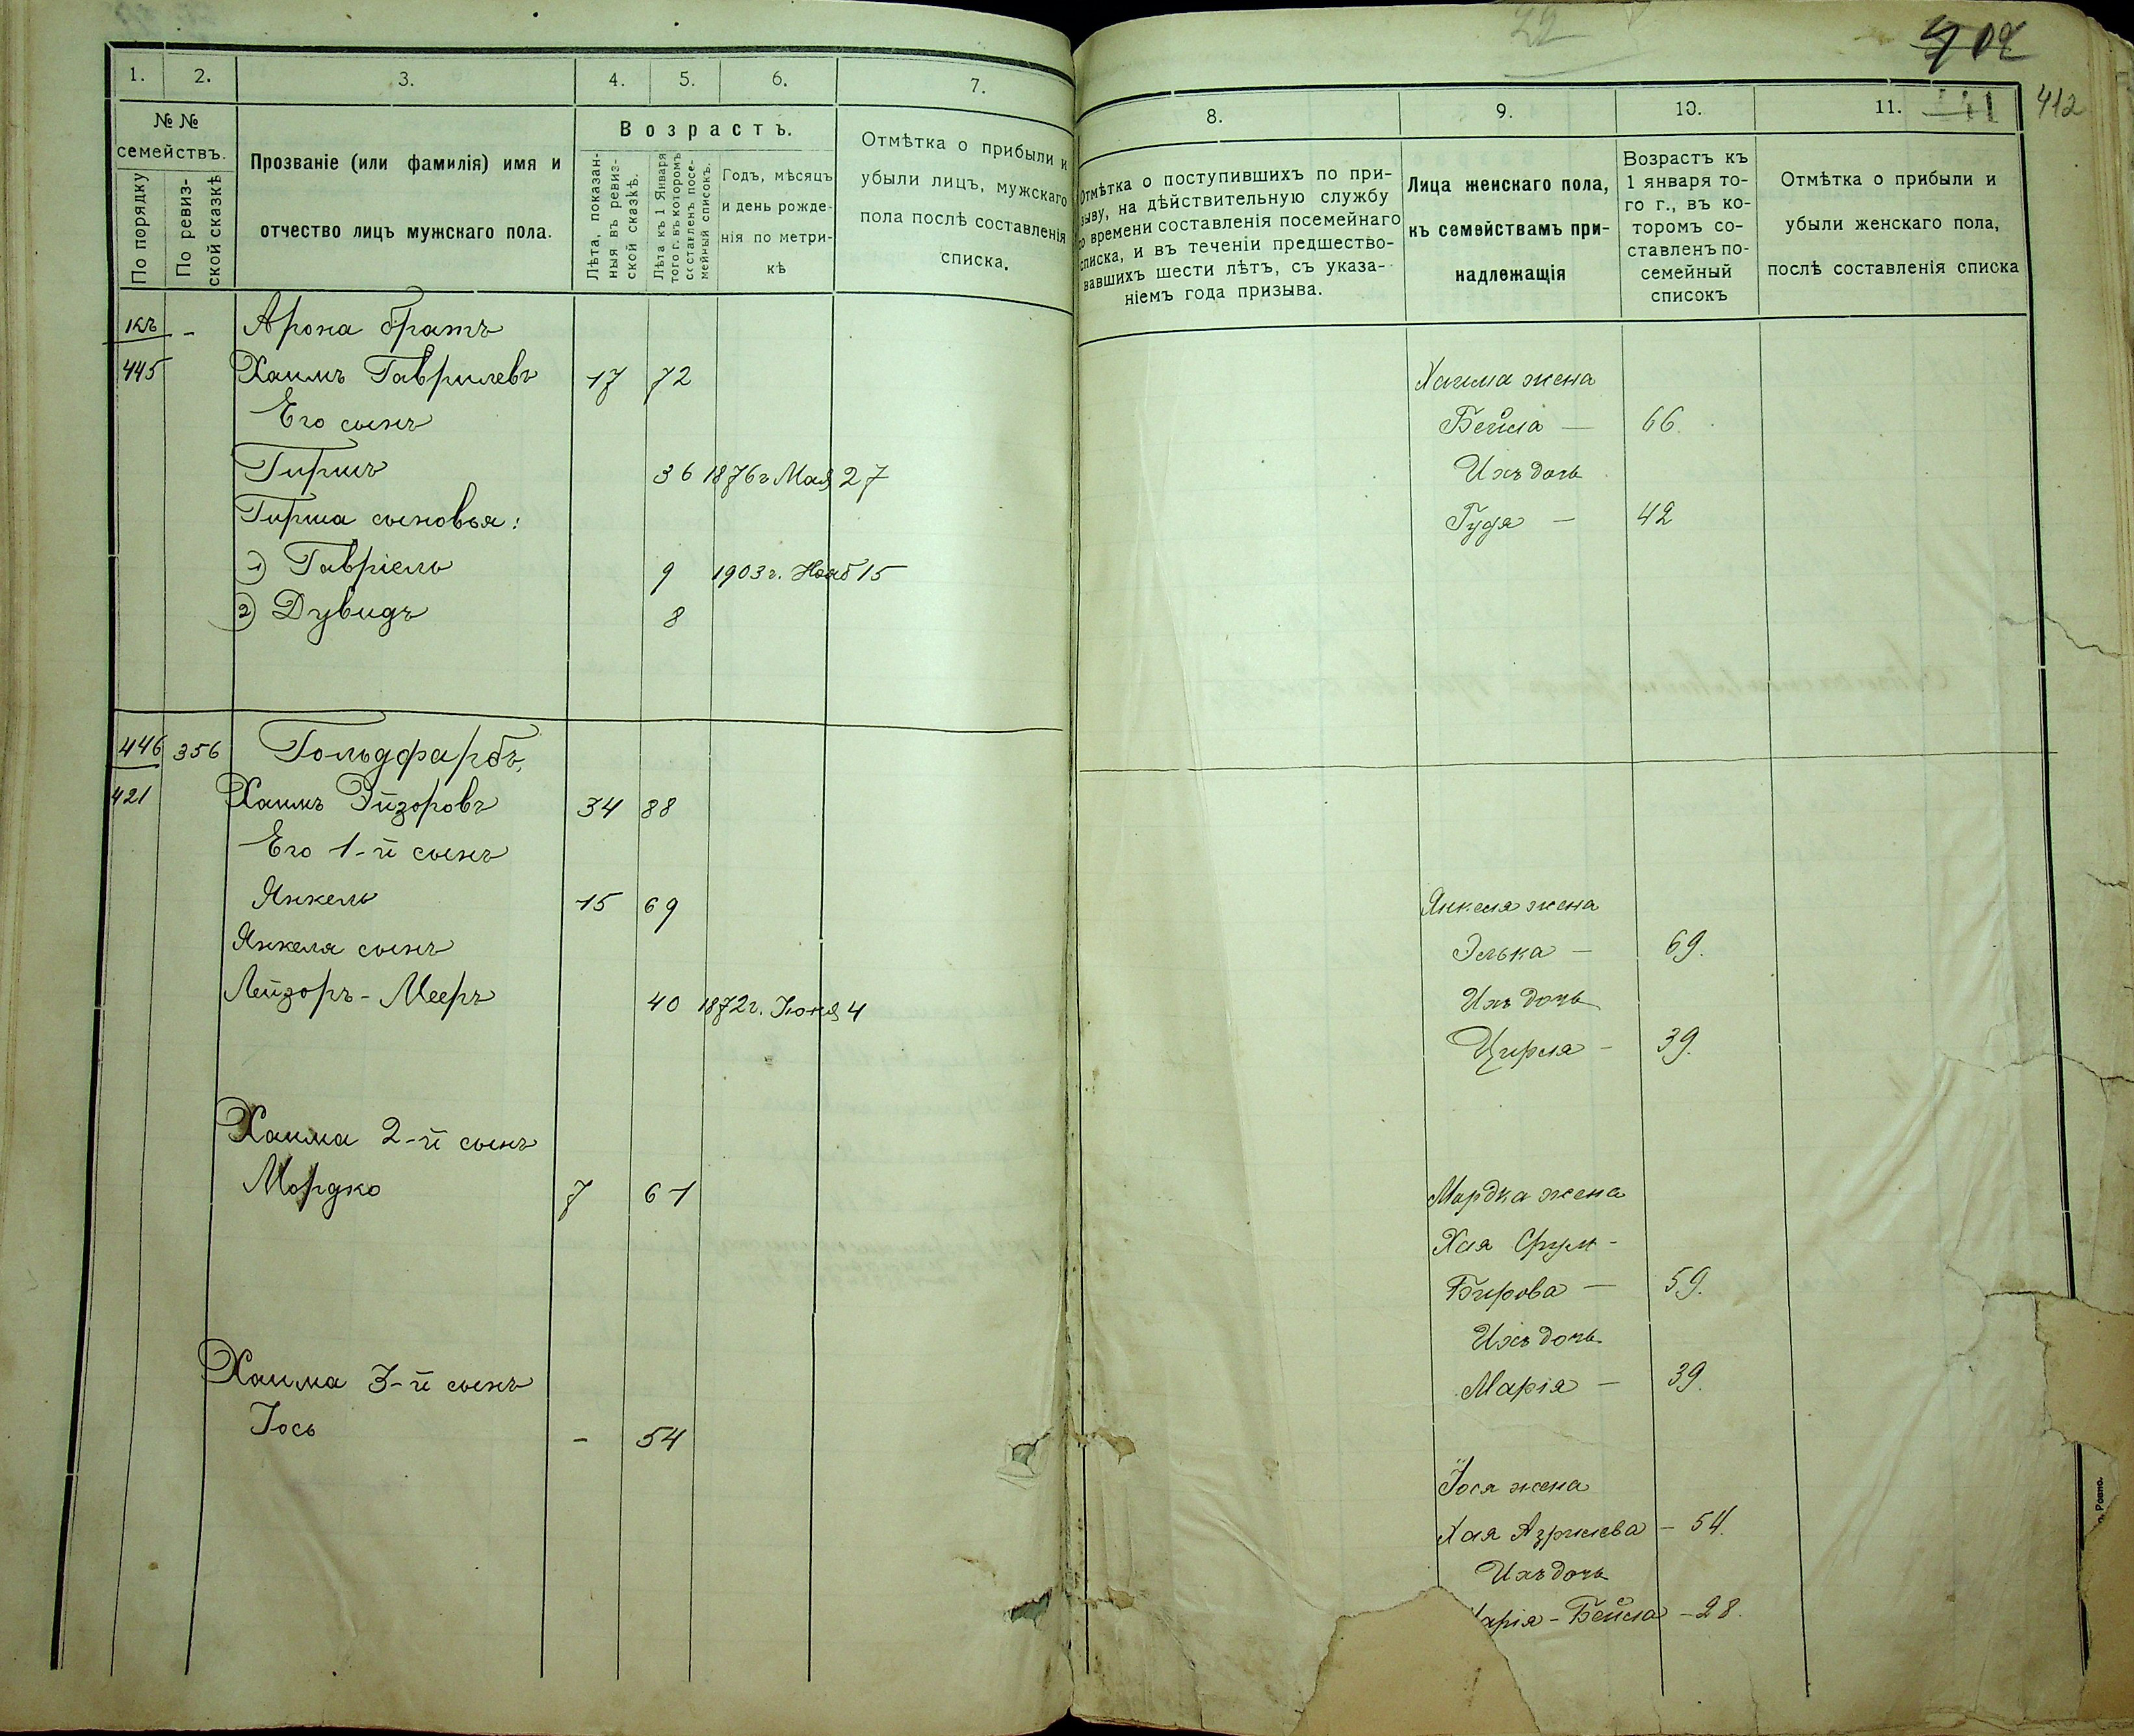 1.
2.
3.
4.
5.
6.
7.
№ №
семействъ.
По порядку
По ревиз-
ской сказкѣ
Прозваніе (или фамилія) имя и
отчество лицъ мужскаго пола.
Возрастъ.
Лѣта, показан-
ныя въ ревиз-
ской сказкѣ.
Лѣта къ 1 Января
того г. въ которомъ
составленъ посе-
мейный списокъ.
Годъ, мѣсяцъ
и день рожде-
нія по метри-
кѣ
Отмѣтка о прибыли и
убыли лицъ, мужскаго
пола послѣ составленія
списка.
къ - Арона братъ
445 Хаимъ Гаврилевъ 17 72
Его сынъ
Гиршъ 36 1876г Мая 27
Гирша сыновья:
1) Гавріель 9 1903г. Нояб 15
2) Дувидъ 8
446 356 Гольдфарбъ,
421 Хаимъ Эйзоровъ 34 88
Его 1-й сынъ
Янкель 15 69
Янкеля сынъ
Лейзоръ-Мееръ 40 1872г. Іюня 4
Хаима 2-й сынъ
Мордко 7 61
Хаима 3-й сынъ
Іось - 54
29
402
412
8.
9.
10.
11.
Отмѣтка о поступившихъ по при-
зыву, на дѣйствительную службу
со времени составленія посемейнаго
списка, и въ теченіи предшество-
вавшихъ шести лѣтъ, съ указа-
ніемъ года призыва.
Лица женскаго пола,
къ семействамъ при-
надлежащія
Возрастъ къ
1 января то-
го г., въ ко-
торомъ со-
ставленъ по-
семейный
списокъ
Отмѣтка о прибыли и
убыли женскаго пола,
послѣ составленія списка
Хаима жена
Бейла — 66.
Ихъ дочь
Гудя — 42
Янкеля жена
Элька — 69.
Ихъ дочь
Цирля — 39.
Мордка жена
Хая Срул-
Бирова — 59.
Ихъ дочь
Марія — 39.
Іося жена
Хая Азрилева — 54.
Ихъ дочь
арія-Бейла — 28.
Ровно.